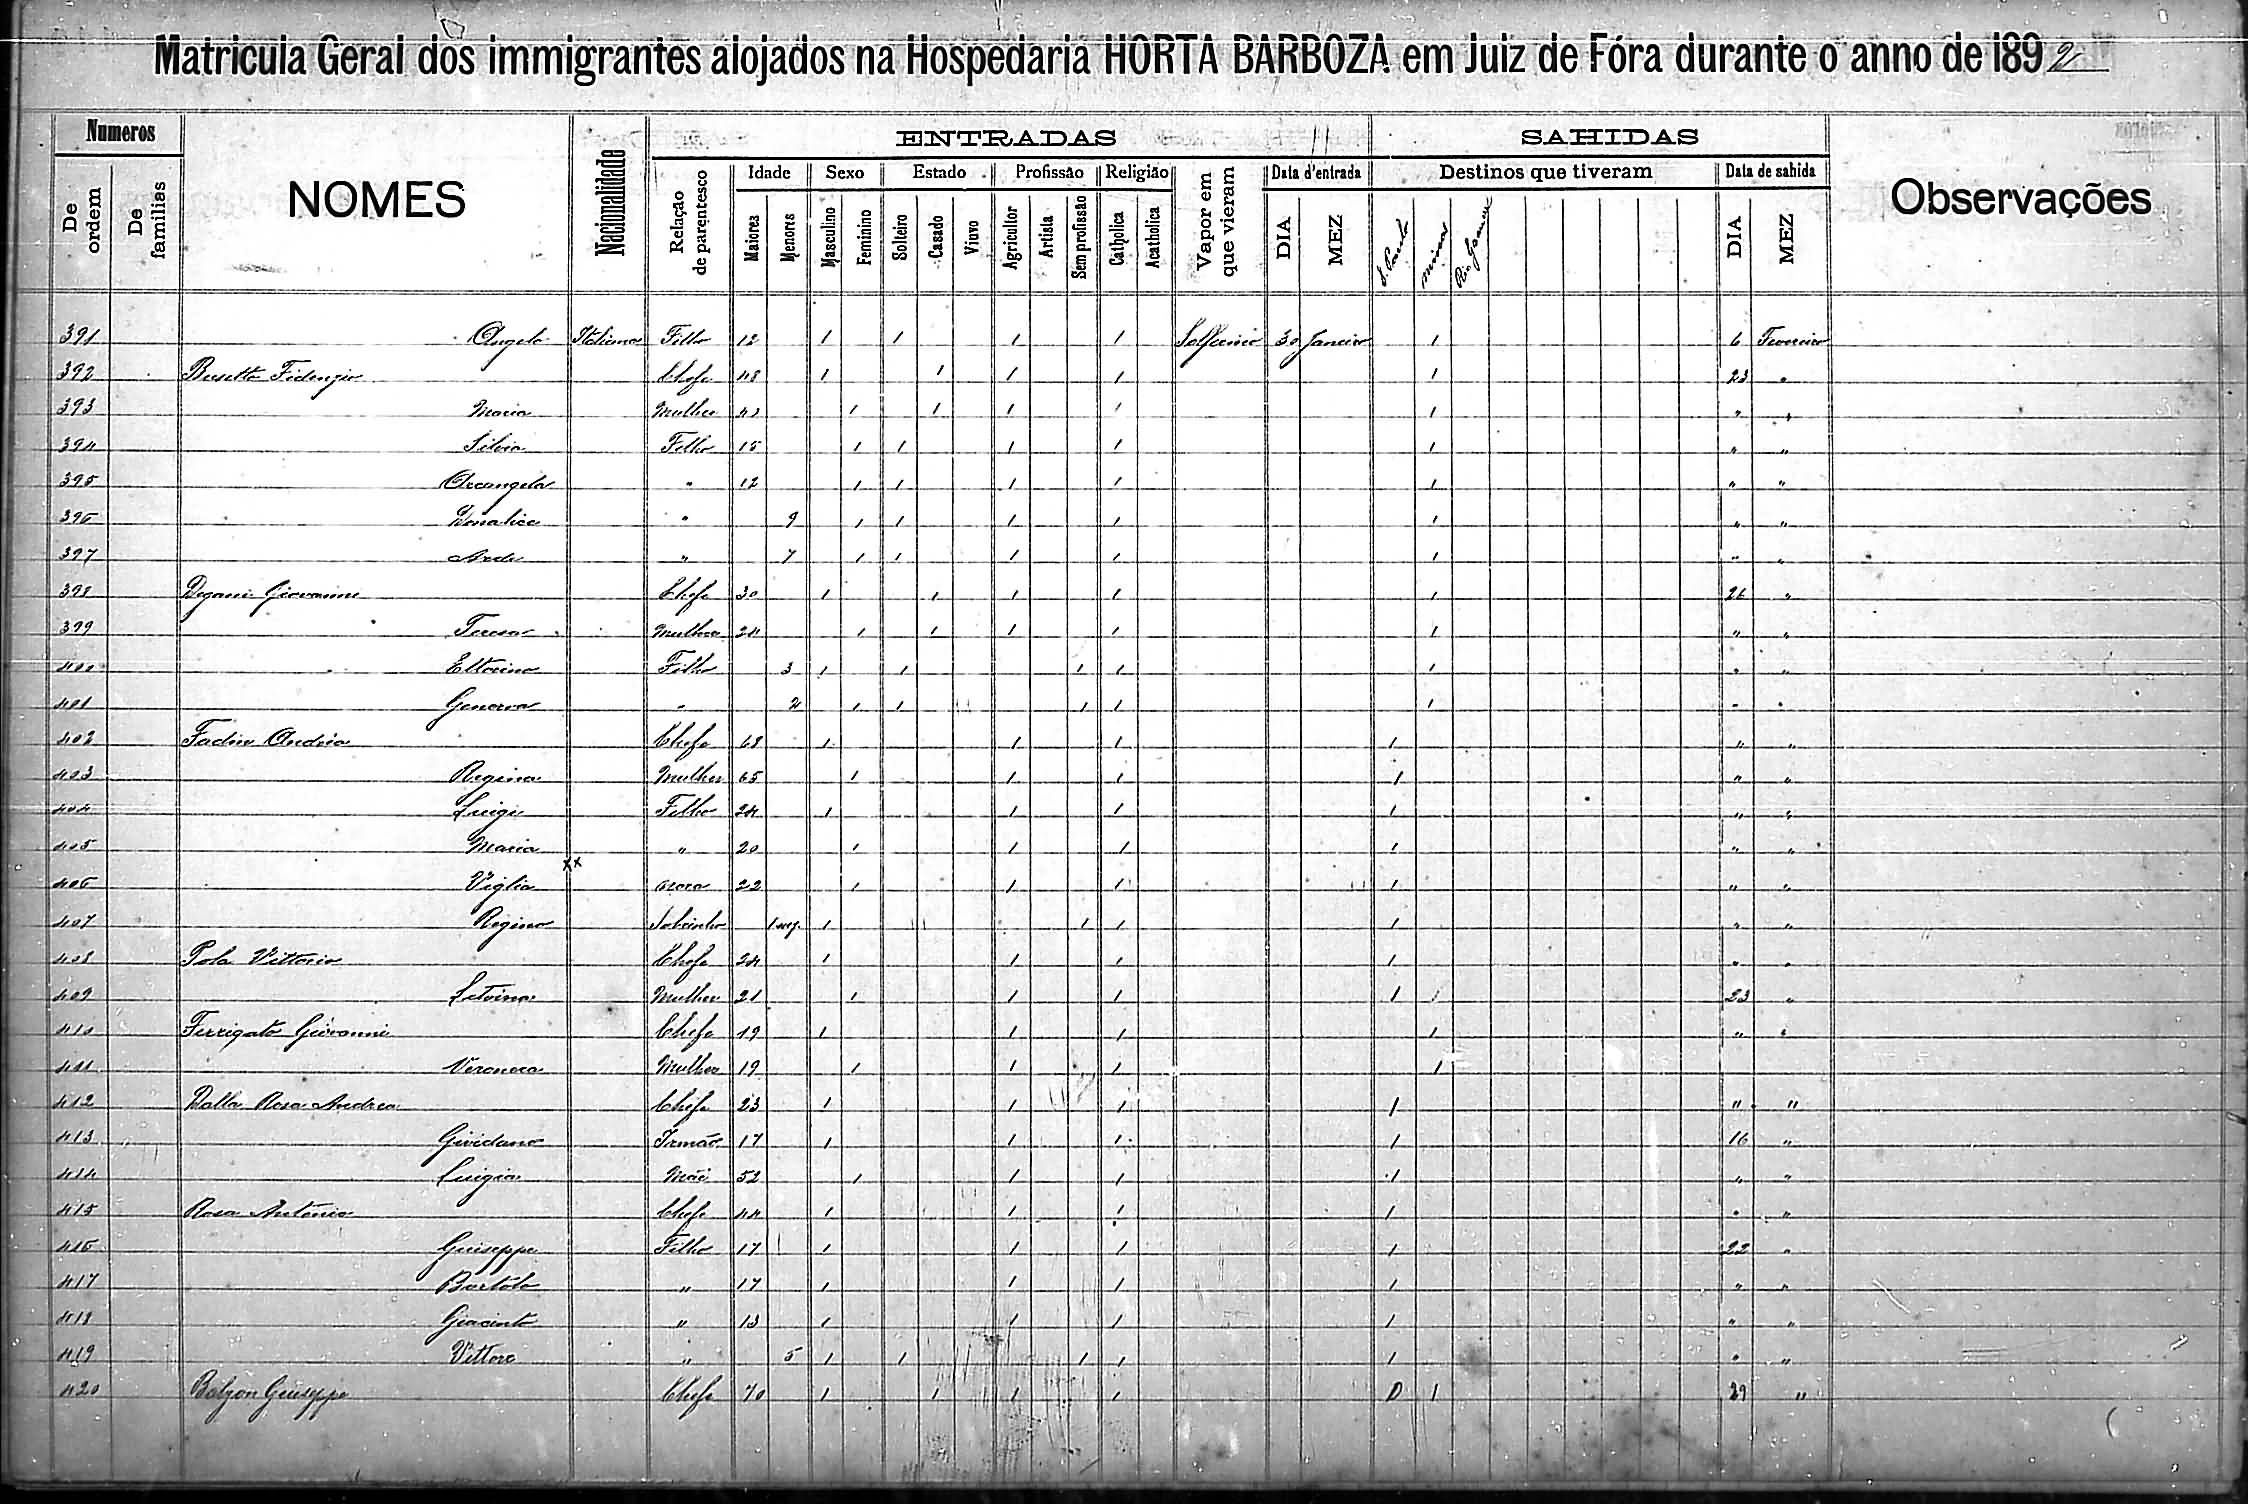 Matricula Geral dos immigrantes alojados na Hospedaria HORTA BARBOZA em Juiz de Fóra durante o anno de 1892
Numeros
De ordem
De familias
NOMES
Nacionalidade
ENTRADAS
Relação de parentesco
Idade
Maiores
Menores
Sexo
Masculino
Feminino
Estado
Solteiro
Casado
Viuvo
Profissão
Agricultor
Artista
Sem profissão
Religião
Catholica
Acatholica
Vapor em que vieram
Data d'entrada
DIA
MEZ
SAHIDAS
Destinos que tiveram
S. Paulo
Minas
Data de sahida
DIA
MEZ
Observações
391 Angelo Italiana Filho 12 1 1 1 1 30 Janeiro 1 6 Fevereiro
392 Busetto Fidenzio Chefe 48 1 1 1 1 1 23 "
393 Maria Mulher 1 1 1 1 1 " "
394 Silvia Filho 15 1 1 1 1 1 " "
395 Arcangela " 12 1 1 1 1 1 " "
396 " 9 1 1 1 1 1 " "
397 " 7 1 1 1 1 1 " "
398 Degani Giovanni Chefe 30 1 1 1 1 1 26 "
399 Teresa Mulher 24 1 1 1 1 1 " "
400 Ettorino Filho 3 1 1 1 1 1 " "
401 Generva " 2 1 1 1 1 1 " "
402 Fadin Andréa Chefe 68 1 1 1 1 " "
403 Regina Mulher 65 1 1 1 1 " "
404 Luigi Filho 24 1 1 1 1 " "
405 Maria " 20 1 1 1 1 " "
406 Viglia xx nora 22 1 1 1 1 " "
407 Regino Sobrinho 1 1 1 1 " "
408 Pola Vittorio Chefe 24 1 1 1 1 " "
409 Mulher 21 1 1 1 1 23 "
410 Ferrigato Giovanni Chefe 19 1 1 1 1 " "
411 Veronica Mulher 19 1 1 1 1
412 Dalla Rosa Andrea Chefe 23 1 1 1 1 " "
413 Irmão 17 1 1 1 1 16 "
414 Luigia Mãe 52 1 1 1 1 " "
415 Rosa Antonio Chefe 44 1 1 1 1 " "
416 Guiseppe Filho 17 1 1 1 1 22 "
417 Bortolo " 17 1 1 1 1 " "
418 Giacinto " 13 1 1 1 1 " "
419 Vittore " 5 1 1 1 1 1 " "
420 Balzon Guiseppe Chefe 70 1 1 1 1 0 1 29 "